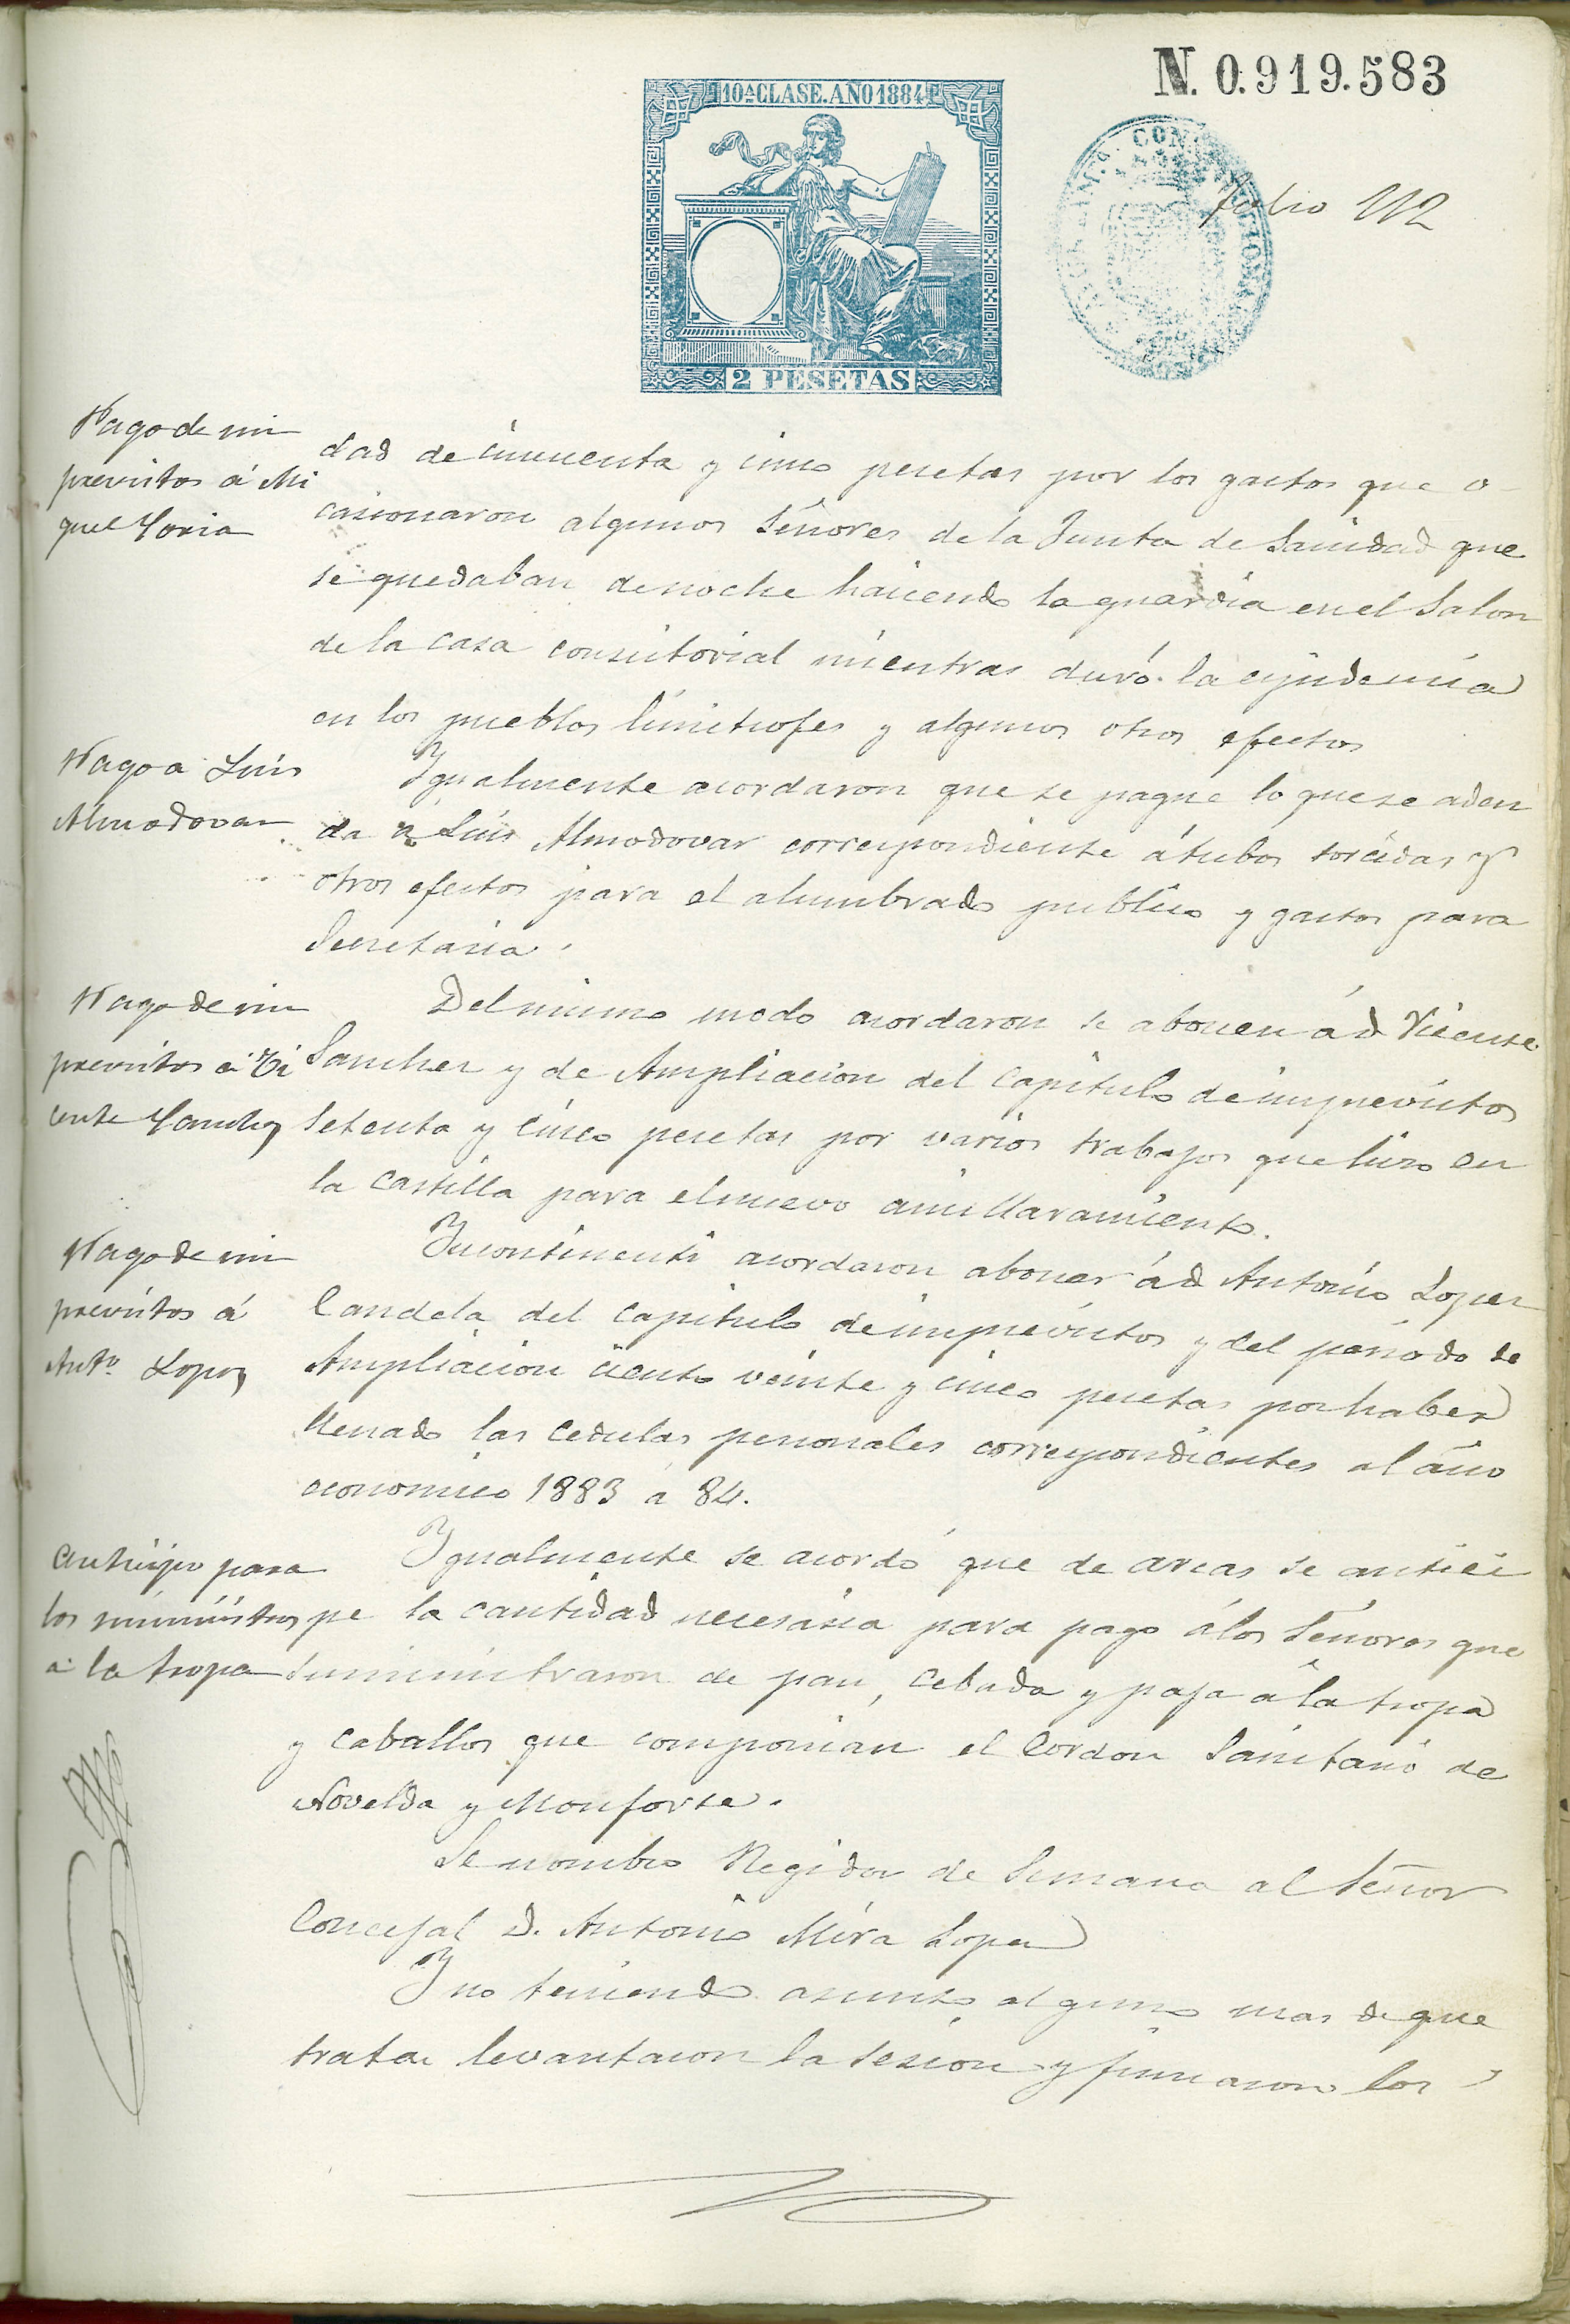 N. 0.919.583
10ª CLASE. AÑO 1884
2 PESETAS
Folio 112
Pago de im
previstos á Mi
guel Soria
dad de cincuenta y cinco pesetas por los gastos que o
casionaron algunos Señores de la Junta de Sanidad que
se quedaban de noche haciendo la guardia en el Salon
de la casa consistorial mientras duró la epidemia
en los pueblos limitrofes y algunos otros efectos
Pago a Luis
Almodovar
Ygualmente acordaron que se pague lo que se adeu
da a Luis Almodovar correspondiente á tubos torcidas y
otros efectos para el alumbrado publico y gastos para
Secretaria.
Pago de im
previstos á Vi
cente Sanchez
Del mismo modo acordaron se abonen á D Vicente
Sanchez y de Ampliacion del capitulo de imprevistos
setenta y cinco pesetas por varios trabajos que hizo en
la castilla para el nuevo amillaramiento.
Pago de im
previstos á
Antº Lopez
Yncontinenti acordaron abonar á D Antonio Lopez
Candela del capitulo de imprevistos y del periodo de
Ampliacion ciento veinte y cinco pesetas por haber
llenado las cedulas personales correspondientes al año
economico 1883 a 84.
Anticipo para
los suministros
a la tropa
Ygualmente se acordó que de arcas se antici
pe la cantidad necesaria para pago á los Señores que
suministraron de pan, cebada y paja á la tropa
y caballos que componian el Cordon Sanitario de
Novelda y Monforte.
Se nombro Regidor de Semana al Señor
Concejal D. Antonio Mira Lopez
Y no teniendo asunto alguno mas de que
tratar levantaron la sesion y firmaron los